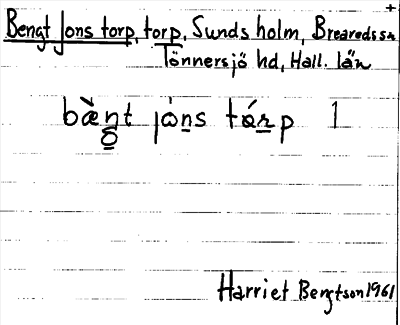 +
Bengt Jons torp, torp, Sunds holm, Breareds sn
Tönnersjö hd, Hall. län
bæ̀n̥t jòn̲s tár̲p 1
Harriet Bengtson 1961